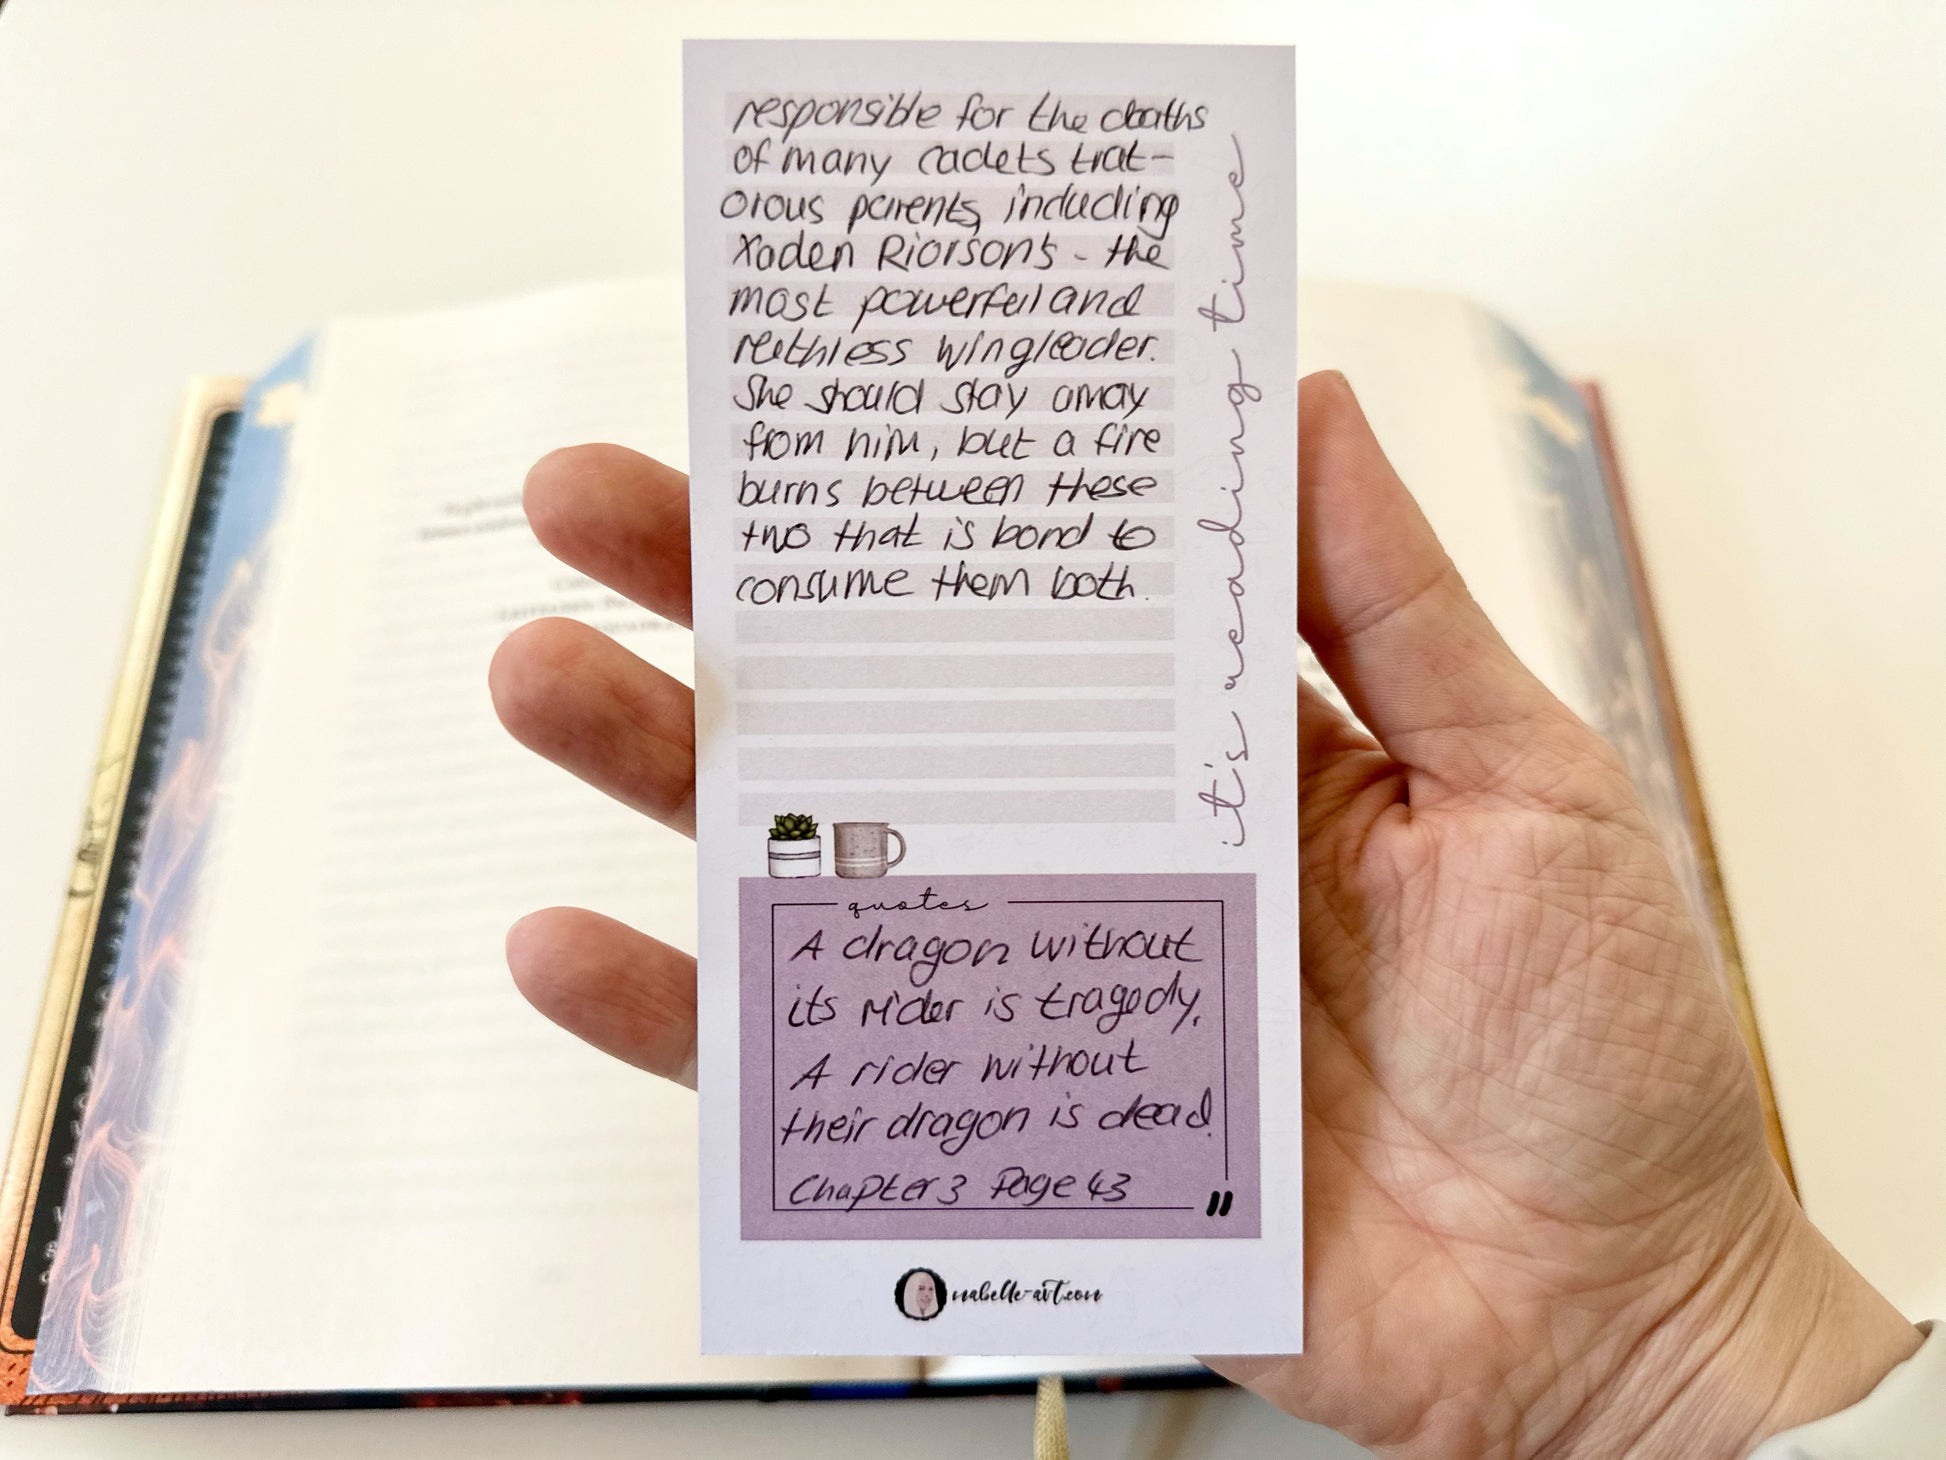 responsible for the deaths
of many cadets trat-
orous parents, including
Xaden Riorson's - the
most powerful and
ruthless wingleader.
She should stay away
from him, but a fire
burns between these
two that is bond to
consume them both.
it's reading time
quotes
A dragon without
its rider is tragedy.
A rider without
their dragon is dead.
Chapter 3 Page 43
"
nabelle-art.com